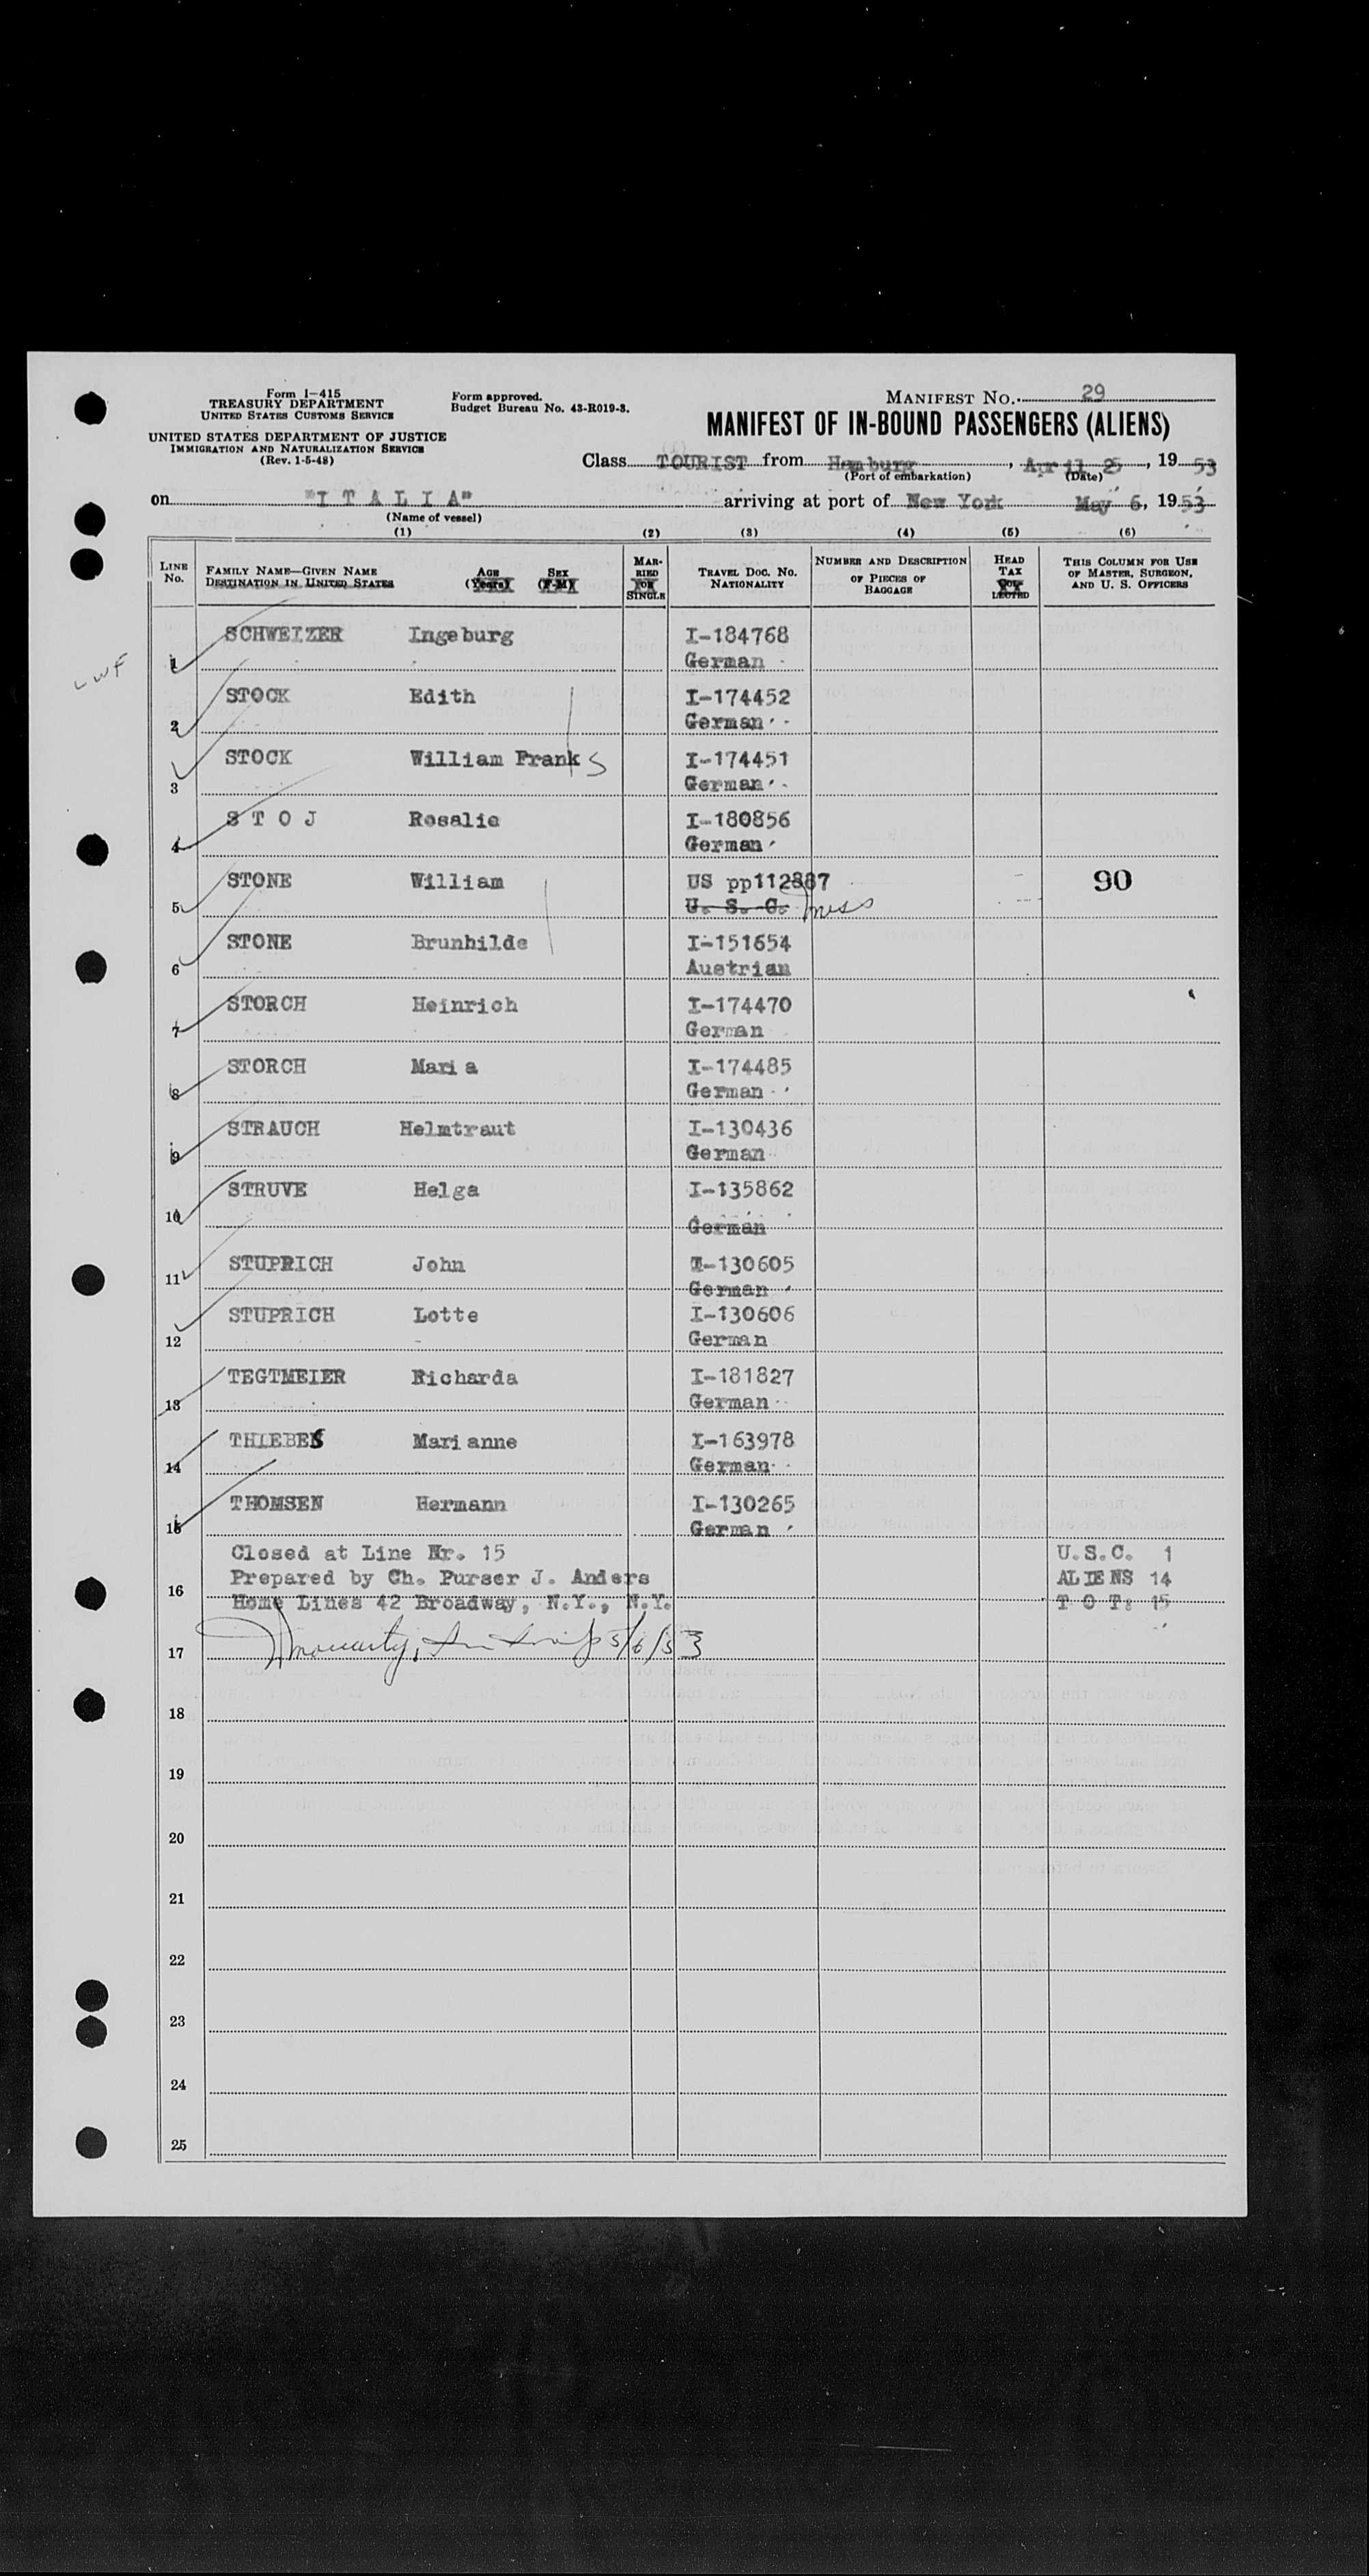 Form I-415
TREASURY DEPARTMENT
UNITED STATES CUSTOMS SERVICE
UNITED STATES DEPARTMENT OF JUSTICE
IMMIGRATION AND NATURALIZATION SERVICE
(Rev. 1-5-48)
Form approved.
Budget Bureau No. 43-R019-3.
MANIFEST No. 29
MANIFEST OF IN-BOUND PASSENGERS (ALIENS)
Class TOURIST from Hamburg, April 25, 19 53
(Port of embarkation) (Date)
on "I T A L I A" arriving at port of New York May 6, 19 53
(Name of vessel)
(1) (2) (3) (4) (5) (6)
LINE No.
FAMILY NAME—GIVEN NAME AGE SEX
DESTINATION IN UNITED STATES (Years) (F-M)
MARRIED OR SINGLE
TRAVEL DOC. NO. NATIONALITY
NUMBER AND DESCRIPTION OF PIECES OF BAGGAGE
HEAD TAX COLLECTED
THIS COLUMN FOR USE OF MASTER, SURGEON, AND U. S. OFFICERS
SCHWEIZER Ingeburg I-184768
LWF 1 German
STOCK Edith I-174452
2 German
STOCK William Frank S I-174451
3 German
S T O J Rosalie I-180856
4 German
STONE William US pp112887 90
5 U. S. C.
STONE Brunhilde I-151654
6 Austrian
STORCH Heinrich I-174470
7 German
STORCH Maria I-174485
8 German
STRAUCH Helmtraut I-130436
9 German
STRUVE Helga I-135862
10 German
STUPRICH John I-130605
11 German
STUPRICH Lotte I-130606
12 German
TEGTMEIER Richarda I-181827
13 German
THIEBES Marianne I-163978
14 German
THOMSEN Hermann I-130265
15 German
Closed at Line Nr. 15 U.S.C. 1
Prepared by Ch. Purser J. Anders ALIENS 14
16 Home Lines 42 Broadway, N.Y., N.Y. T O T: 15
17 5/6/53
18
19
20
21
22
23
24
25